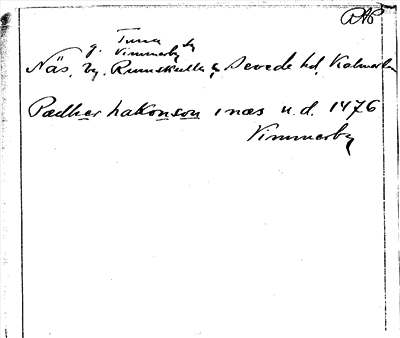 RAP
Tuna
g. Vimmerby
Näs, by, Rumskulla sn Sevede hd, Kalmar län
Pædher hakonson i næs u.d. 1476
Vimmerby